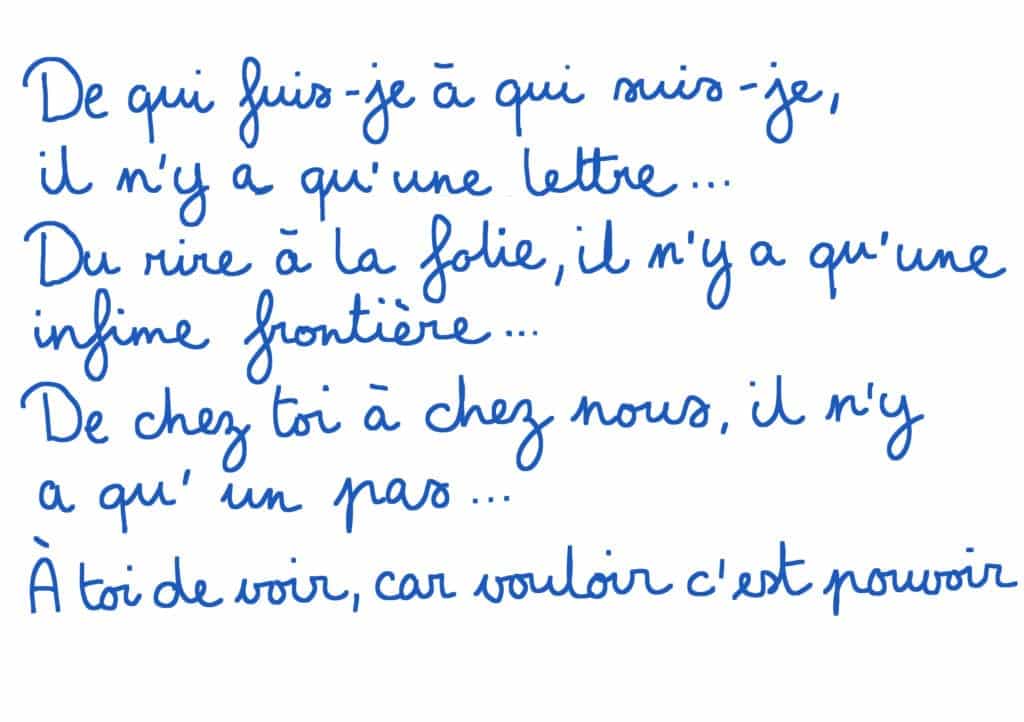 De qui fuis-je à qui suis-je,
il n'y a qu'une lettre...
Du rire à la folie, il n'y a qu'une
infime frontière...
De chez toi à chez nous, il n'y
a qu'un pas...
À toi de voir, car vouloir c'est pouvoir